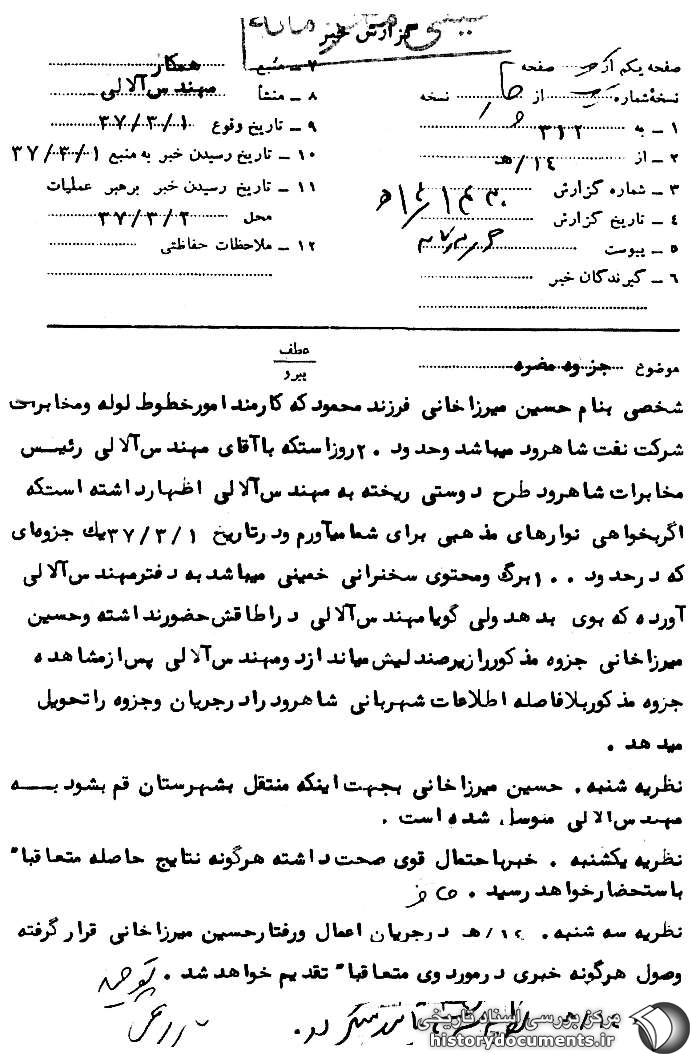 گزارش خبر
صفحه یکم از صفحه
نسخهٔ شماره از نسخه
۱ ــ به ۳۱۲
۲ ــ از ۱۴/هـ
۳ ــ شماره گزارش
۴ ــ تاریخ گزارش
۵ ــ پیوست
۶ ــ گیرندگان خبر
۷ ــ منبع همکار
۸ ــ منشأ مهندس آلالی
۹ ــ تاریخ وقوع ۳۷/۳/۱
۱۰ ــ تاریخ رسیدن خبر به منبع ۳۷/۳/۱
۱۱ ــ تاریخ رسیدن خبر برهبر عملیات
محل ۳۷/۳/۲
۱۲ ــ ملاحظات حفاظتی
موضوع جزوه مضره
عطف
پیرو
شخصی بنام حسین میرزاخانی فرزند محمود که کارمند امور خطوط لوله ومخابرات
شرکت نفت شاهرود میباشد وحدود ۲۰ روز استکه با آقای مهندس آلالی رئیس
مخابرات شاهرود طرح دوستی ریخته به مهندس آلالی اظهار داشته استکه
اگر بخواهی نوارهای مذهبی برای شما میآورم ودر تاریخ ۳۷/۳/۱ یك جزوه‌ای
که در حدود ۱۰۰ برگ ومحتوی سخنرانی خمینی میباشد به دفتر مهندس آلالی
آورده که بوی بدهد ولی گویا مهندس آلالی در اطاقش حضور نداشته وحسین
میرزاخانی جزوه مذکور را زیر صندلیش میاندازد ومهندس آلالی پس از مشاهده
جزوه مذکور بلافاصله اطلاعات شهربانی شاهرود را در جریان وجزوه را تحویل
میدهد .
نظریه شنبه . حسین میرزاخانی بجهت اینکه منتقل بشهرستان قم بشود بــه
مهندس آلالی متوسل شده است .
نظریه یکشنبه . خبر با احتمال قوی صحت داشته هرگونه نتایج حاصله متعاقبا"
باستحضار خواهد رسید .
نظریه سه شنبه . ۱۴/هـ در جریان اعمال ورفتار حسین میرزاخانی قرار گرفته
وصول هرگونه خبری در مورد وی متعاقبا" تقدیم خواهد شد .
مرکز بررسی اسناد تاریخی
historydocuments.ir